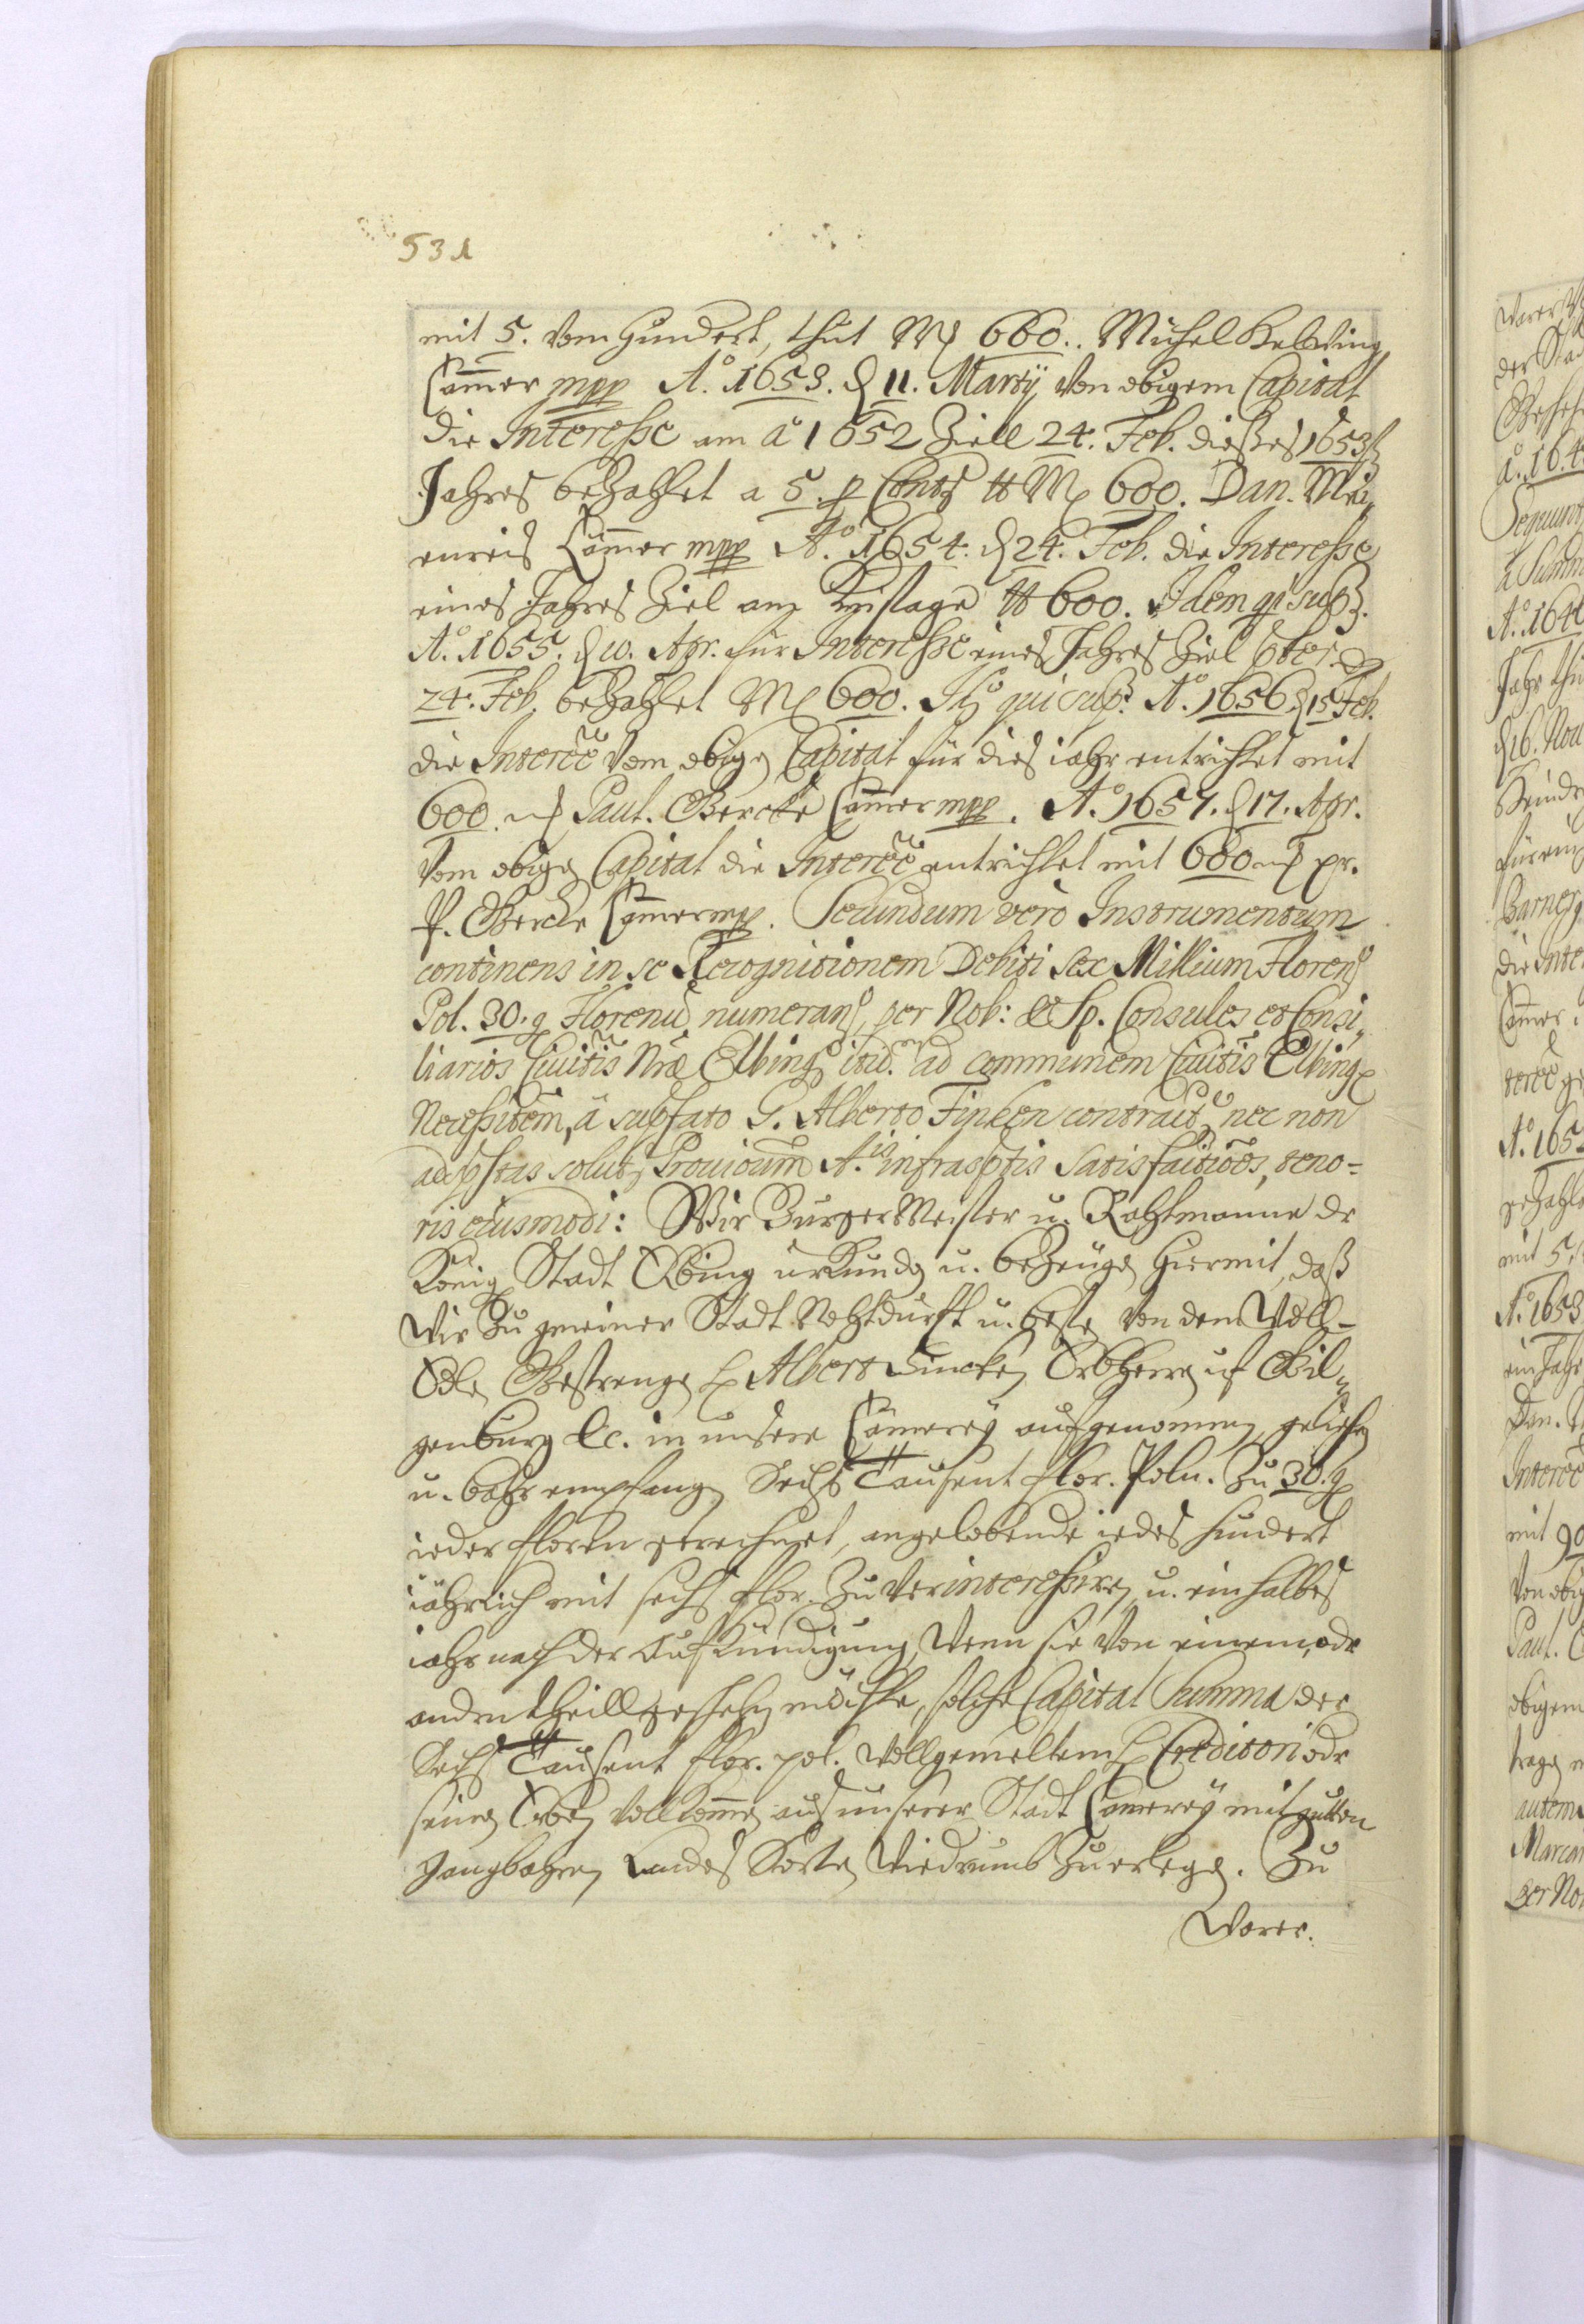 531
mit 5. vom Hundert, thut M 660.. Michel Helwing
Cämmer mpp Aō. 1653. d 11. Martÿ von obigem Capital
die Interesse am aō 1652 Ziell 24. Feb. dieses 1653st
Jahres bezahlet a 5. p Cento tt M 600. Dan. Meü„
enreis Cämmer mpp Aō. 1654. d 24. Feb. die Interesse
eines Jahres Ziel am Zinstage tt 600. Idem qi supz.
Aō. 1655. d 10. Apr. für Interesse eines Jahres Ziel
24. Feb. bezahlet M 600. qui sup. Aō. 1656. d 15 Feb.
die Interēē vom obigen Capital für dies iahr entrichtet mit
600. m Paul. Gercke Cämmer mpp. Aō. 1657. d 17. Apr.
Vom obigen Capital die Interēē entrichtet mit 600 m pr.
P. Gercke Cämmer mpp. Secundum verò Instrumentum
continens in se Recognitionem Debiti sex Millium Floren
Pol. 30. g Florenū numeran, per Nob: & Sp. Consules et Consi„
liarios Ciuitis Nræ Elbing itid. ad communem Ciuitis Elbing
Necessitem, â supfato G. Alberto Finken contract, nec non
ad pstas solut, Prouicum A.is infrasptis Satisfaitiōēs, teno=
ris eiusmodi: Wir BurgerMeister u. Rahtmanne dr
König Stadt Elbing urkunden u. bezeugen hiermit, daß
Wir zu gemeiner Stadt Nohtdurft u. beste von dem Woll-
Edlen Gestrengen H Albert Fincken Erbherrn uf Gil„
genburg &c. in unsere Cämmereÿ aufgenommen, geliehen
u. bahr empfangen Sechs Tausent flor. Poln. zu 30. g
ieder floren gerechnet, angelobende iedes hundert
iährlich mit sechs flor. zu verinteressiren, u. ein halbes
iahr nach der Aufkündigung, wenn sie von einem, odr
andern theill geschehen möchte, solche Capital Summa der
Sechs Tausent flor. pol. wollgemeltem H Creditori odr
seinen Erben vollkommen aus unserer Stadt Cämmereÿ mit gutten
gangbahren Landes Sorten wiedrumb zu erlegen. Zu
Warer.